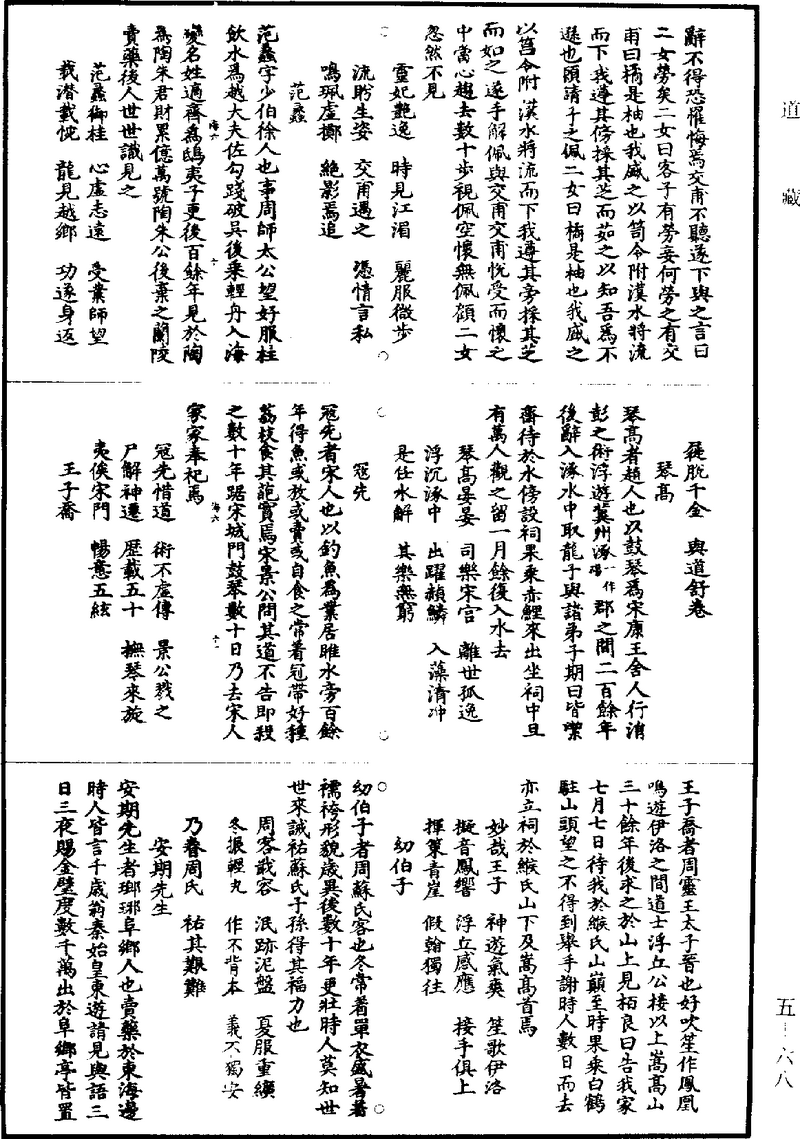 道藏
辭不得恐罹悔焉交甫不聽遂下與之言曰
二女勞矣二女曰客子有勞妾何勞之有交
甫曰橘是柚也我盛之以笥令附漢水將流
而下我遵其傍採其芝而茹之以知吾爲不
遜也願請子之佩二女曰橘是柚也我盛之
以莒令附漢水將流而下我遵其旁採其芝
而茹之遂手解佩與交甫交甫悅受而懷之
中當心趨去數十步視佩空懷無佩顧二女
忽然不見
靈妃艷逸 時見江湄 麗服微步
流盼生姿 交甫遇之 憑情言私
鳴珮虛擲 絕影焉追
范蠡
范蠡字少伯徐人也事周師太公望好服桂
飲水爲越大夫佐勾踐破吳後乘輕舟入海
變名姓適齊爲鴟夷子更後百餘年見於陶
海六
爲陶朱君財累億萬號陶朱公後棄之蘭陵
賣藥後人世世識見之
范蠡御桂 心虛志遠 受業師望
載潛載惋 龍見越鄉 功遂身返
屣脫千金 與道舒卷
琴高
琴高者趙人也以鼓琴爲宋康王舍人行涓
彭之術浮遊冀州涿一作碭郡之間二百餘年
後辭入涿水中取龍子與諸弟子期曰皆潔
齋待於水傍設祠果乘赤鯉來出坐祠中旦
有萬人觀之留一月餘復入水去
琴高晏晏 司樂宋宮 離世孤逸
浮沉涿中 出躍赬鱗 入藻清冲
是任水解 其樂無窮
冦先
冦先者宋人也以釣魚爲業居睢水旁百餘
年得魚或放或賣或自食之常着冠帶好種
荔枝食其葩實焉宋景公問其道不告即殺
之數十年踞宋城門鼓琴數十日乃去宋人
海六
家家奉祀焉
冦先惜道 術不虛傳 景公戮之
尸解神遷 歷載五十 撫琴來旋
夷俟宋門 暢意五絃
王子喬
王子喬者周靈王太子晉也好吹笙作鳳凰
鳴遊伊洛之間道士浮丘公接以上嵩高山
三十餘年後求之於山上見栢良曰告我家
七月七日待我於緱氏山巔至時果乘白鶴
駐山頭望之不得到舉手謝時人數日而去
亦立祠於緱氏山下及嵩高首焉
妙哉王子 神遊氣爽 笙歌伊洛
擬音鳳響 浮丘感應 接手俱上
揮策青崖 假翰獨往
幼伯子
幼伯子者周蘇氏客也冬常着單衣盛暑着
襦袴形貌歲異後數十年更壯時人莫知世
世來誡祐蘇氏子孫得其福力也
周客戢容 泯跡泥盤 夏服重纊
冬振輕丸 作不背本 義不獨安
乃眷周氏 祐其艱難
安期先生
安期先生者瑯琊阜鄉人也賣藥於東海邊
時人皆言千歲翁秦始皇東遊請見與語三
日三夜賜金璧度數千萬出於阜鄉亭皆置
五-六八